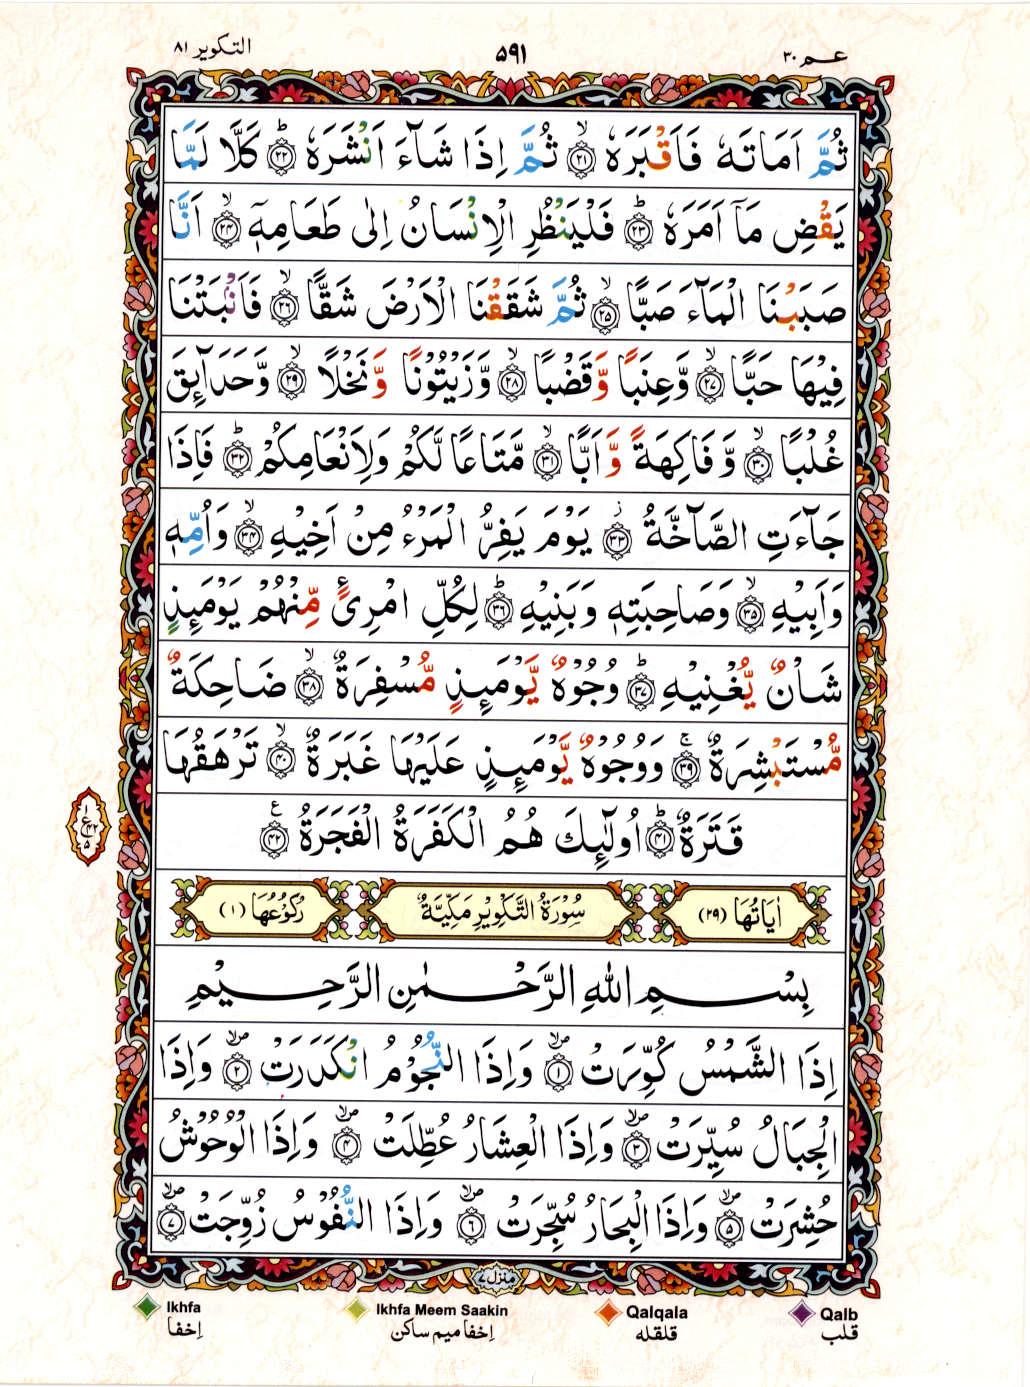 التكوير ٨١
٥٩١
عـم ٣٠
ثُمَّ اَمَاتَهٗ فَاَقْبَرَهٗ ۙ﴿۲۱﴾ ثُمَّ اِذَا شَآءَ اَنْشَرَهٗ ؕ﴿۲۲﴾ كَلَّا لَمَّا
يَقْضِ مَاۤ اَمَرَهٗ ؕ﴿۲۳﴾ فَلْيَنْظُرِ الْاِنْسَانُ اِلٰى طَعَامِهٖۤ ۙ﴿۲۴﴾ اَنَّا
صَبَبْنَا الْمَآءَ صَبًّا ۙ﴿۲۵﴾ ثُمَّ شَقَقْنَا الْاَرْضَ شَقًّا ۙ﴿۲۶﴾ فَاَنْۢبَتْنَا
فِيْهَا حَبًّا ۙ﴿۲۷﴾ وَّعِنَبًا وَّقَضْبًا ۙ﴿۲۸﴾ وَّزَيْتُوْنًا وَّنَخْلًا ۙ﴿۲۹﴾ وَّحَدَآئِقَ
غُلْبًا ۙ﴿۳۰﴾ وَّفَاكِهَةً وَّاَبًّا ۙ﴿۳۱﴾ مَّتَاعًا لَّكُمْ وَلِاَنْعَامِكُمْ ؕ﴿۳۲﴾ فَاِذَا
جَآءَتِ الصَّآخَّةُ ؗ﴿۳۳﴾ يَوْمَ يَفِرُّ الْمَرْءُ مِنْ اَخِيْهِ ۙ﴿۳۴﴾ وَاُمِّهٖ
وَاَبِيْهِ ۙ﴿۳۵﴾ وَصَاحِبَتِهٖ وَبَنِيْهِ ؕ﴿۳۶﴾ لِكُلِّ امْرِئٍ مِّنْهُمْ يَوْمَئِذٍ
شَاْنٌ يُّغْنِيْهِ ؕ﴿۳۷﴾ وُجُوْهٌ يَّوْمَئِذٍ مُّسْفِرَةٌ ۙ﴿۳۸﴾ ضَاحِكَةٌ
مُّسْتَبْشِرَةٌ ۚ﴿۳۹﴾ وَوُجُوْهٌ يَّوْمَئِذٍ عَلَيْهَا غَبَرَةٌ ۙ﴿۴۰﴾ تَرْهَقُهَا
قَتَرَةٌ ؕ﴿۴۱﴾ اُولٰٓئِكَ هُمُ الْكَفَرَةُ الْفَجَرَةُ ﴿۴۲﴾ ع
١ ع ٤٢ ٥
اٰيَاتُهَا (٢٩) سُوْرَةُ التَّكْوِيْرِ مَكِّيَّةٌ رُكُوْعُهَا (١)
بِسْمِ اللهِ الرَّحْمٰنِ الرَّحِيْمِ
اِذَا الشَّمْسُ كُوِّرَتْ ۪ۙ﴿۱﴾ وَاِذَا النُّجُوْمُ انْكَدَرَتْ ۪ۙ﴿۲﴾ وَاِذَا
الْجِبَالُ سُيِّرَتْ ۪ۙ﴿۳﴾ وَاِذَا الْعِشَارُ عُطِّلَتْ ۪ۙ﴿۴﴾ وَاِذَا الْوُحُوْشُ
حُشِرَتْ ۪ۙ﴿۵﴾ وَاِذَا الْبِحَارُ سُجِّرَتْ ۪ۙ﴿۶﴾ وَاِذَا النُّفُوْسُ زُوِّجَتْ ۪ۙ﴿۷﴾
منزل ٧
Ikhfa Ikhfa Meem Saakin Qalqala Qalb
اِخفا اِخفا ميم ساكن قلقله قلب